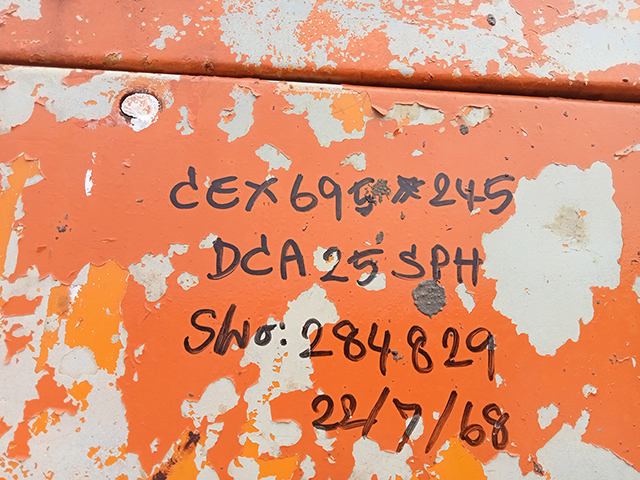 CEX695*245
DCA 25 SPH
S/No: 284829
22/7/68